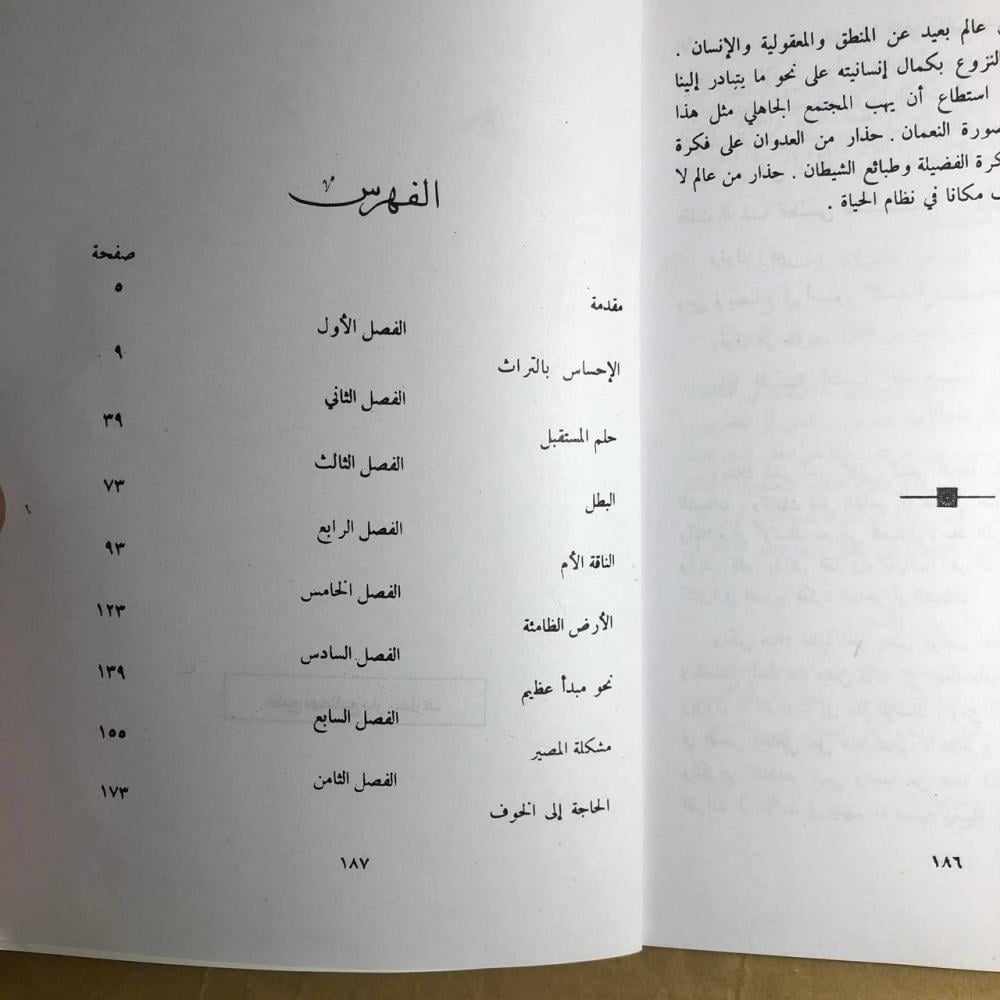 عالم بعيد عن المنطق والمعقولية والإنسان .
النزوع بكمال إنسانيته على نحو ما يتبادر إلينا
استطاع أن يهب المجتمع الجاهلي مثل هذا
صورة النعمان . حذار من العدوان على فكرة
الفضيلة وطبائع الشيطان . حذار من عالم لا
مكانا في نظام الحياة .
١٨٦
الفهرس
صفحة
مقدمة ٥
الفصل الأول
الإحساس بالتراث ٩
الفصل الثاني
حلم المستقبل ٣٩
الفصل الثالث
البطل ٧٣
الفصل الرابع
الناقة الأم ٩٣
الفصل الخامس
الأرض الظامئة ١٢٣
الفصل السادس
نحو مبدأ عظيم ١٣٩
الفصل السابع
مشكلة المصير ١٥٥
الفصل الثامن
الحاجة إلى الخوف ١٧٣
١٨٧